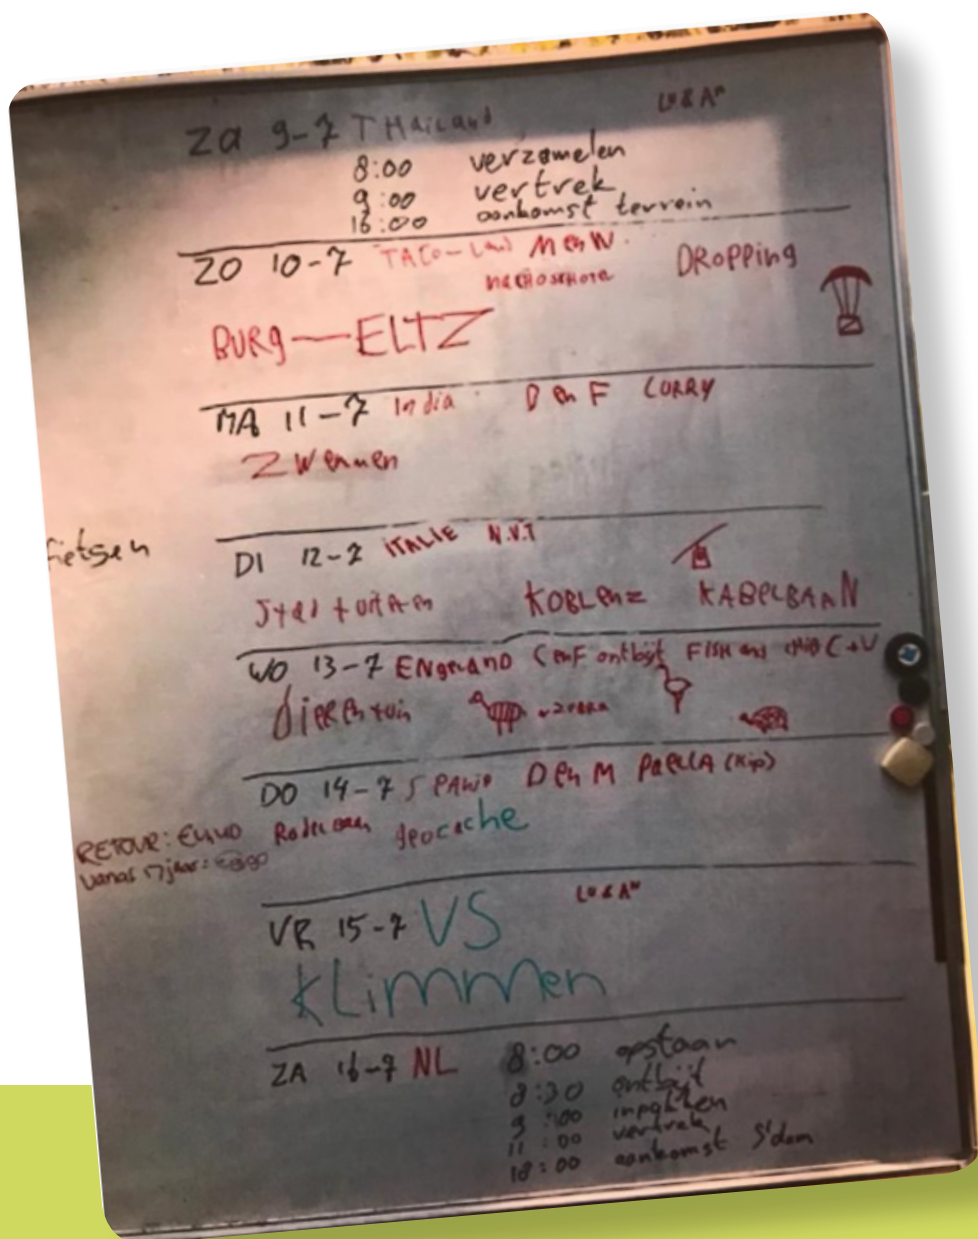 ZA 9-7 THailand
8:00 verzamelen
9:00 vertrek
16:00 aankomst terrein
ZO 10-7 TACO-Land M en W DROPPing
BURg — ELTZ
MA 11-7 India D en F CURRY
Zwemmen
fietsen
DI 12-7 iTALIE N.V.T
KOBLenz KABELBAAN
WO 13-7 ENgeLAND C en F ontbijt FISH and C+V
DiereNtuin zebra
DO 14-7 SPANje D en M PaELLA (Kip)
RETOUR: Rodelbaan geocache
vanaf 17 jaar:
VR 15-7 VS
KLimmen
ZA 16-7 NL 8:00 opstaan
8:30 ontbijt
9:00 inpakken
11:00 vertrek
18:00 aankomst S'dam